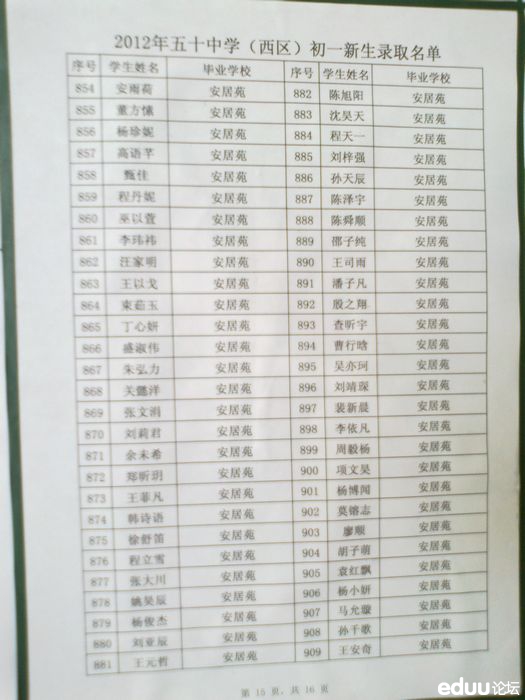 2012年五十中学（西区）初一新生录取名单
序号 学生姓名 毕业学校 序号 学生姓名 毕业学校
854 安雨荷 安居苑 882 陈旭阳 安居苑
855 董方愫 安居苑 883 沈昊天 安居苑
856 杨珍妮 安居苑 884 程天一 安居苑
857 高语芊 安居苑 885 刘梓强 安居苑
858 甄佳 安居苑 886 孙天辰 安居苑
859 程丹妮 安居苑 887 陈泽宇 安居苑
860 巫以萱 安居苑 888 陈舜顺 安居苑
861 李玮祎 安居苑 889 邵子纯 安居苑
862 汪家明 安居苑 890 王司雨 安居苑
863 王以戈 安居苑 891 潘子凡 安居苑
864 束茹玉 安居苑 892 殷之翔 安居苑
865 丁心妍 安居苑 893 查昕宇 安居苑
866 盛淑伟 安居苑 894 曹行晗 安居苑
867 朱弘力 安居苑 895 吴亦珂 安居苑
868 关懿洋 安居苑 896 刘靖琛 安居苑
869 张文涓 安居苑 897 裴新晨 安居苑
870 刘莉君 安居苑 898 李依凡 安居苑
871 余未希 安居苑 899 周毅杨 安居苑
872 郑昕玥 安居苑 900 项文昊 安居苑
873 王菲凡 安居苑 901 杨博闻 安居苑
874 韩诗语 安居苑 902 莫镕志 安居苑
875 徐舒笛 安居苑 903 廖顺 安居苑
876 程立雪 安居苑 904 胡子萌 安居苑
877 张大川 安居苑 905 袁红飘 安居苑
878 姚昊辰 安居苑 906 杨小妍 安居苑
879 杨俊杰 安居苑 907 马允璇 安居苑
880 刘亚辰 安居苑 908 孙千歌 安居苑
881 王元哲 安居苑 909 王安奇 安居苑
第 15 页，共 16 页
eduu论坛